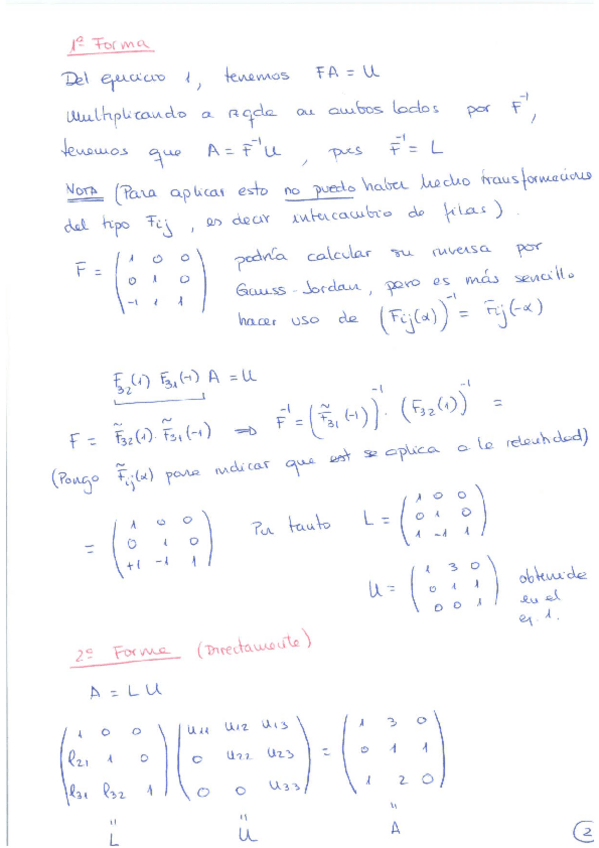 1ª Forma
Del ejercicio 1, tenemos FA = U
Multiplicando a izqda en ambos lados por F⁻¹,
tenemos que A = F⁻¹U, pues F⁻¹ = L
NOTA (Para aplicar esto no puedo haber hecho transformaciones
del tipo Fij, es decir intercambio de filas).
F = (1 0 0 / 0 1 0 / -1 1 1) podría calcular su inversa por
Gauss-Jordan, pero es más sencillo
hacer uso de (Fij(α))⁻¹ = Fij(-α)
F32(1) F31(-1) A = U
F = F̃32(1) · F̃31(-1) ⇒ F⁻¹ = (F̃31(-1))⁻¹ · (F32(1))⁻¹ =
(Pongo F̃ij(α) para indicar que se aplica a la identidad)
= (1 0 0 / 0 1 0 / +1 -1 1) Por tanto L = (1 0 0 / 0 1 0 / 1 -1 1)
U = (1 3 0 / 0 1 1 / 0 0 1) obtenida
en el
ej. 1.
2ª Forma (Directamente)
A = L U
(1 0 0 / l21 1 0 / l31 l32 1) (u11 u12 u13 / 0 u22 u23 / 0 0 u33) = (1 3 0 / 0 1 1 / 1 2 0)
" " "
L U A
2